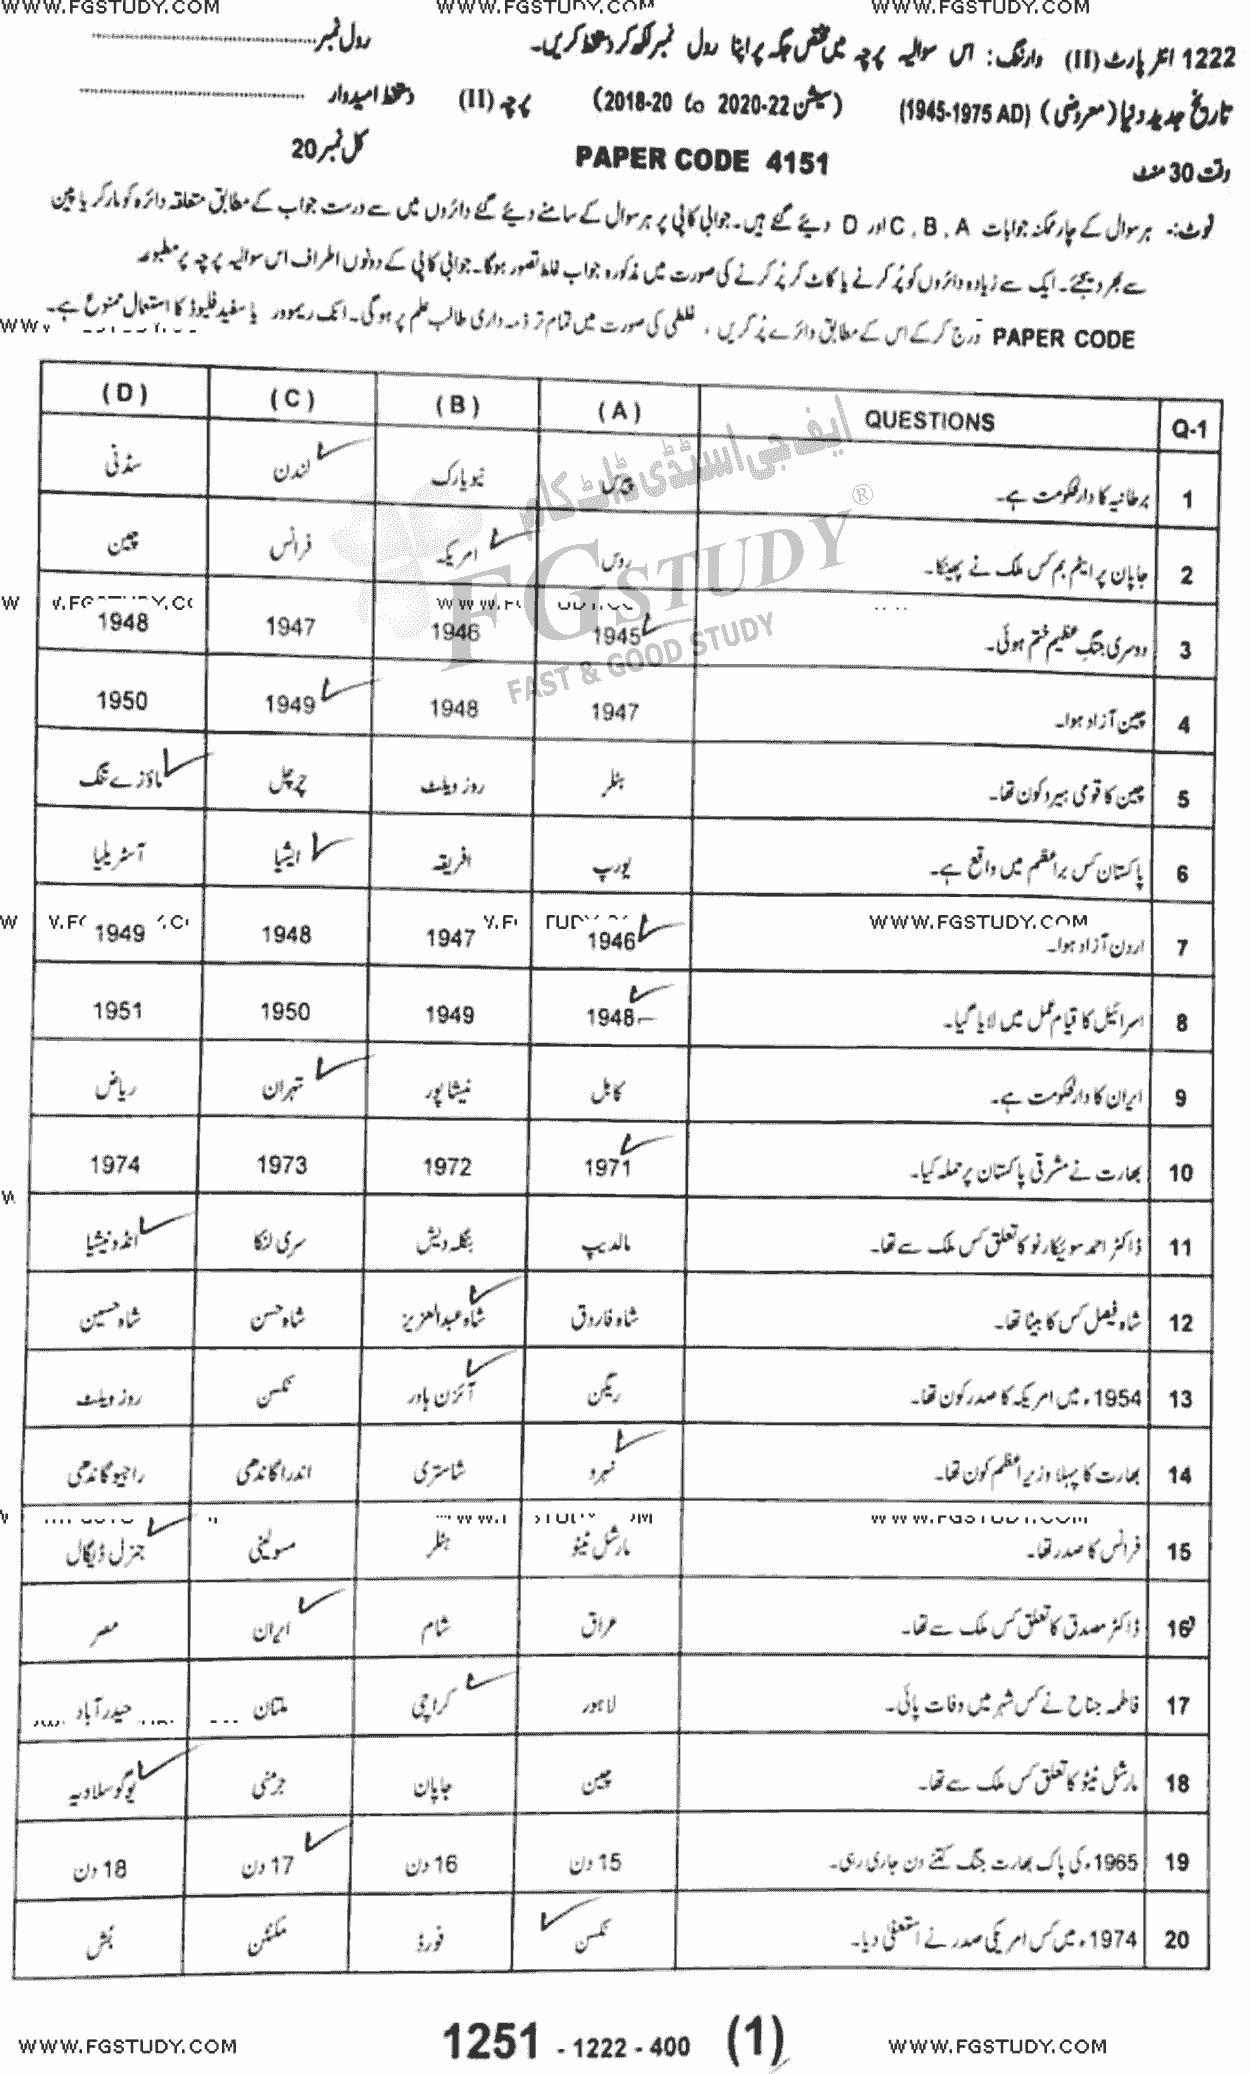 WWW.FGSTUDY.COM WWW.FGSTUDY.COM WWW.FGSTUDY.COM
1222 انٹر پارٹ (II) وارننگ: اس سوالیہ پرچہ میں مختص جگہ پر اپنا رول نمبر لکھ کر دستخط کریں۔ رول نمبر
تاریخ جدید دنیا (معروضی) (1945-1975 AD) (سیشن 2018-20 to 2020-22) پرچہ (II) دستخط امیدوار
وقت 30 منٹ PAPER CODE 4151 کل نمبر 20
نوٹ:- ہر سوال کے چار ممکنہ جوابات A ، B ، C اور D دیئے گئے ہیں۔ جوابی کاپی پر ہر سوال کے سامنے دیئے گئے دائروں میں سے درست جواب کے مطابق متعلقہ دائرہ کو مارکر یا پین
سے بھر دیجئے۔ ایک سے زیادہ دائروں کو پُر کرنے یا کاٹ کر پُر کرنے کی صورت میں مذکورہ جواب غلط تصور ہوگا۔ جوابی کاپی کے دونوں اطراف اس سوالیہ پرچہ پر مطبوعہ
PAPER CODE درج کر کے اس کے مطابق دائرے پُر کریں ، غلطی کی صورت میں تمام تر ذمہ داری طالب علم پر ہوگی۔ انک ریموور یا سفید فلیوڈ کا استعمال ممنوع ہے۔
Q-1 QUESTIONS (A) (B) (C) (D)
ایف جی اسٹڈی ڈاٹ کام
FGSTUDY ®
FAST & GOOD STUDY
1 برطانیہ کا دارالحکومت ہے۔ پیرس نیویارک لندن سڈنی
2 جاپان پر ایٹم بم کس ملک نے پھینکا۔ روس امریکہ فرانس چین
3 دوسری جنگ عظیم ختم ہوئی۔ 1945 1946 1947 1948
4 چین آزاد ہوا۔ 1947 1948 1949 1950
5 چین کا قومی ہیرو کون تھا۔ ہٹلر روز ویلٹ چرچل ماؤزے تنگ
6 پاکستان کس براعظم میں واقع ہے۔ یورپ افریقہ ایشیا آسٹریلیا
WWW.FGSTUDY.COM
7 اردن آزاد ہوا۔ 1946 1947 1948 1949
8 اسرائیل کا قیام عمل میں لایا گیا۔ 1948 1949 1950 1951
9 ایران کا دارالحکومت ہے۔ کابل نیشاپور تہران ریاض
10 بھارت نے مشرقی پاکستان پر حملہ کیا۔ 1971 1972 1973 1974
11 ڈاکٹر احمد سوئیکارنو کا تعلق کس ملک سے تھا۔ مالدیپ بنگلہ دیش سری لنکا انڈونیشیا
12 شاہ فیصل کس کا بیٹا تھا۔ شاہ فاروق شاہ عبدالعزیز شاہ حسن شاہ حسین
13 1954ء میں امریکہ کا صدر کون تھا۔ ریگن آئزن ہاور نکسن روز ویلٹ
14 بھارت کا پہلا وزیر اعظم کون تھا۔ نہرو شاستری اندرا گاندھی راجیو گاندھی
15 فرانس کا صدر تھا۔ مارشل ٹیٹو ہٹلر مسولینی جنرل ڈیگال
16 ڈاکٹر مصدق کا تعلق کس ملک سے تھا۔ عراق شام ایران مصر
17 فاطمہ جناح نے کس شہر میں وفات پائی۔ لاہور کراچی ملتان حیدر آباد
18 مارشل ٹیٹو کا تعلق کس ملک سے تھا۔ چین جاپان جرمنی یوگوسلاویہ
19 1965ء کی پاک بھارت جنگ کتنے دن جاری رہی۔ 15 دن 16 دن 17 دن 18 دن
20 1974ء میں کس امریکی صدر نے استعفیٰ دیا۔ نکسن فورڈ کلنٹن بُش
WWW.FGSTUDY.COM 1251 - 1222 - 400 (1) WWW.FGSTUDY.COM